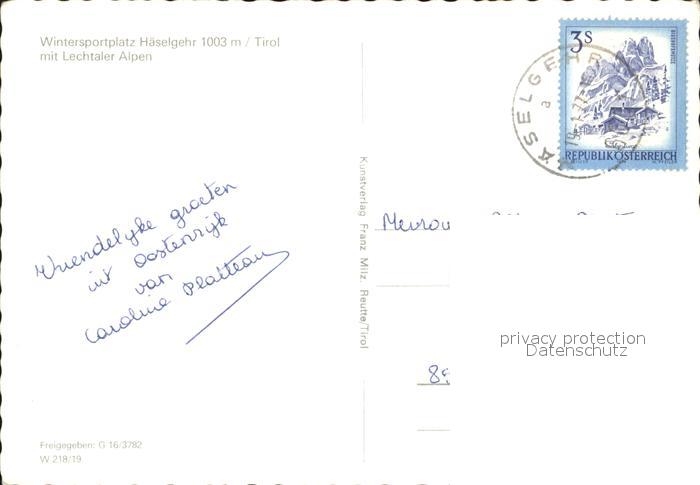 Wintersportplatz Häselgehr 1003 m / Tirol
mit Lechtaler Alpen
3S
HÄSELGEHR
a
REPUBLIK ÖSTERREICH
Kunstverlag Franz Milz, Reutte/Tirol
Vriendelijke groeten
uit Oostenrijk
van
Caroline Platteau
privacy protection
Datenschutz
Freigegeben: G 16/3782
W 218/19